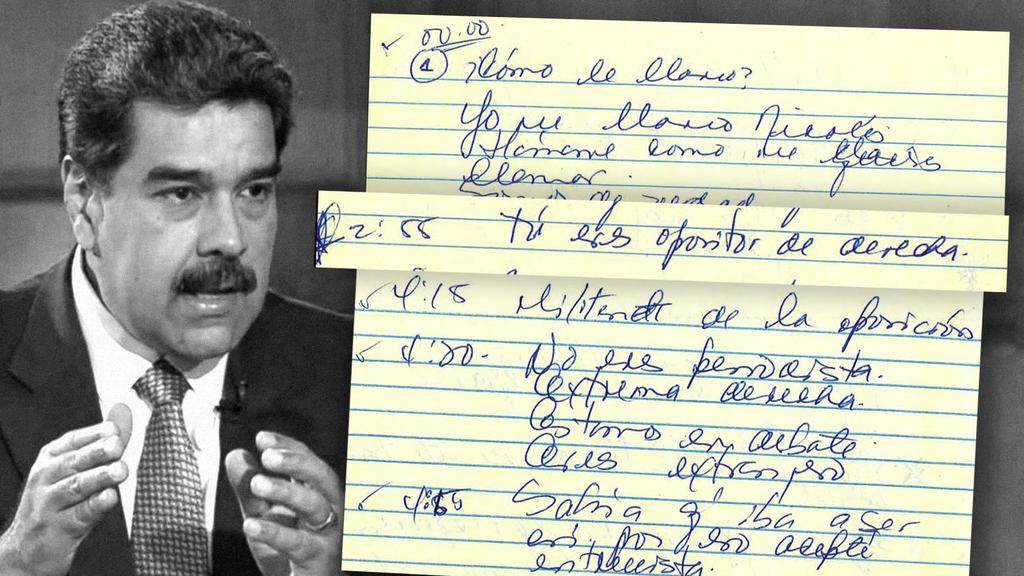 00.00
1 ¿Cómo le llamo?
Yo me llamo Nicolás
Llámame como me quieras
llamar.
2:55 Tú eres opositor de derecha.
4:18 Militante de la oposición
4:20. No eres periodista.
extrema derecha.
Estamo en debate.
Eres extranjero
4:55 Sabia q iba a ser
así, por eso acepté
entrevista.